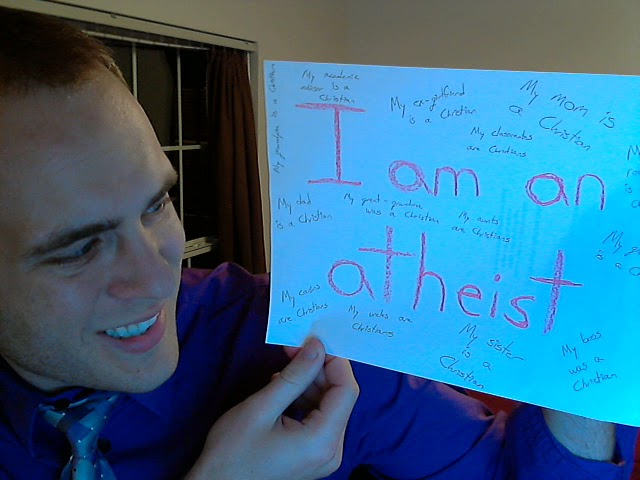 My academic
advisor is a
Christian
My ex-girlfriend
is a Christian
My Mom is
a Christian
My classmates
are Christians
My
is
I am an
My dad
is a Christian
My great-grandma
was a Christian
My aunts
are Christians
is a
atheist
My cousins
are Christians
My uncles are
Christians
My sister
is a
Christian
My boss
was a
Christian